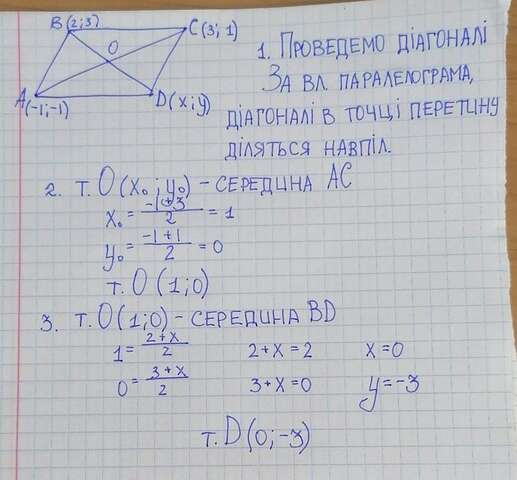 B(2;3)
C(3;1)
O
A(-1;-1)
D(x;y)
1. Проведемо діагоналі
За вл. паралелограма,
діагоналі в точці перетину
діляться навпіл.
2. т. O(x₀;y₀) – середина AC
x₀ = (-1+3)/2 = 1
y₀ = (-1+1)/2 = 0
т. O(1;0)
3. т. O(1;0) – середина BD
1 = (2+x)/2 2+x=2 x=0
0 = (3+x)/2 3+x=0 y=-3
т. D(0;-3)